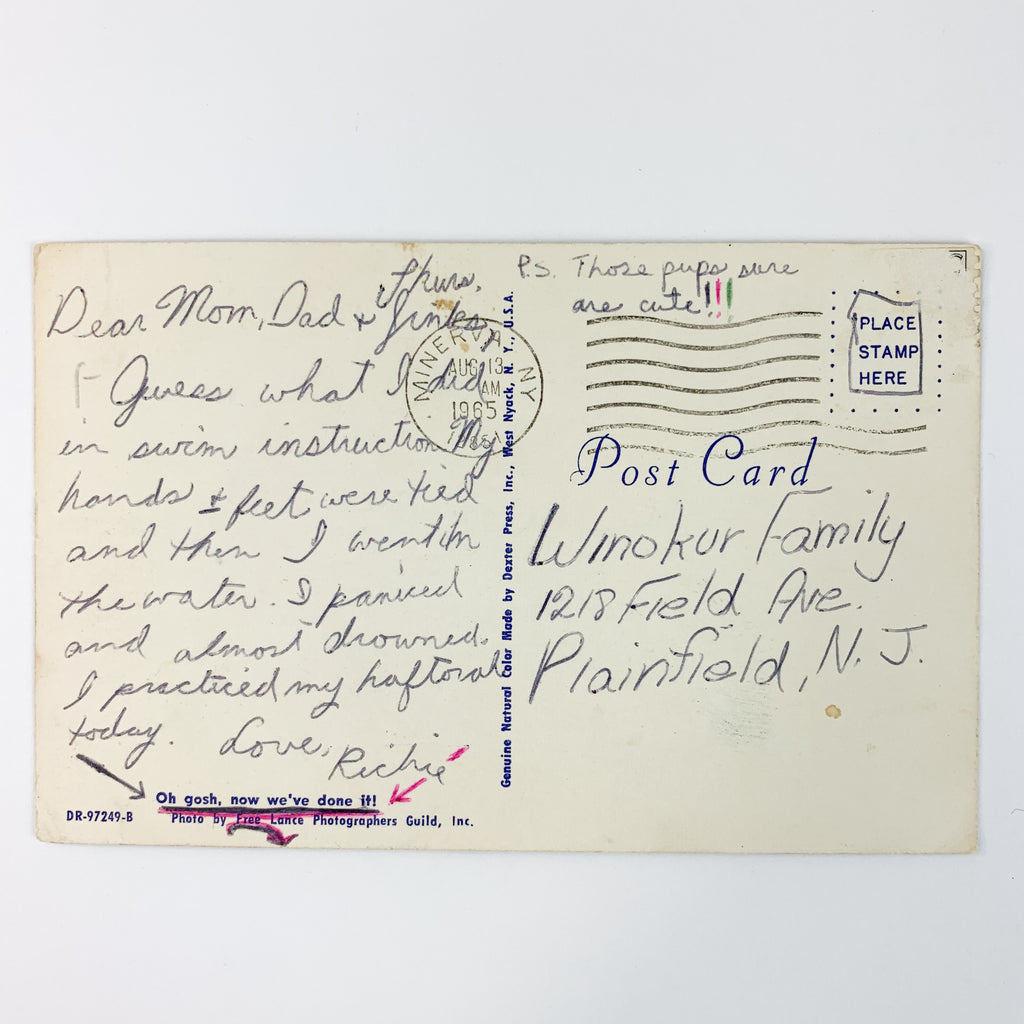 Thurs.
Dear Mom, Dad & Jinks,
Guess what I did
in swim instruction My
hands & feet were tied
and then I went in
the water. I paniced
and almost drowned.
I practiced my haftorah
today. Love,
Richie
Oh gosh, now we've done it!
DR-97249-B Photo by Free Lance Photographers Guild, Inc.
Genuine Natural Color Made by Dexter Press, Inc., West Nyack, N. Y., U.S.A.
MINERVA NY
AUG 13
AM
1965
P.S. Those pups sure
are cute!!!!
PLACE
STAMP
HERE
Post Card
Winokur Family
1218 Field Ave.
Plainfield, N. J.